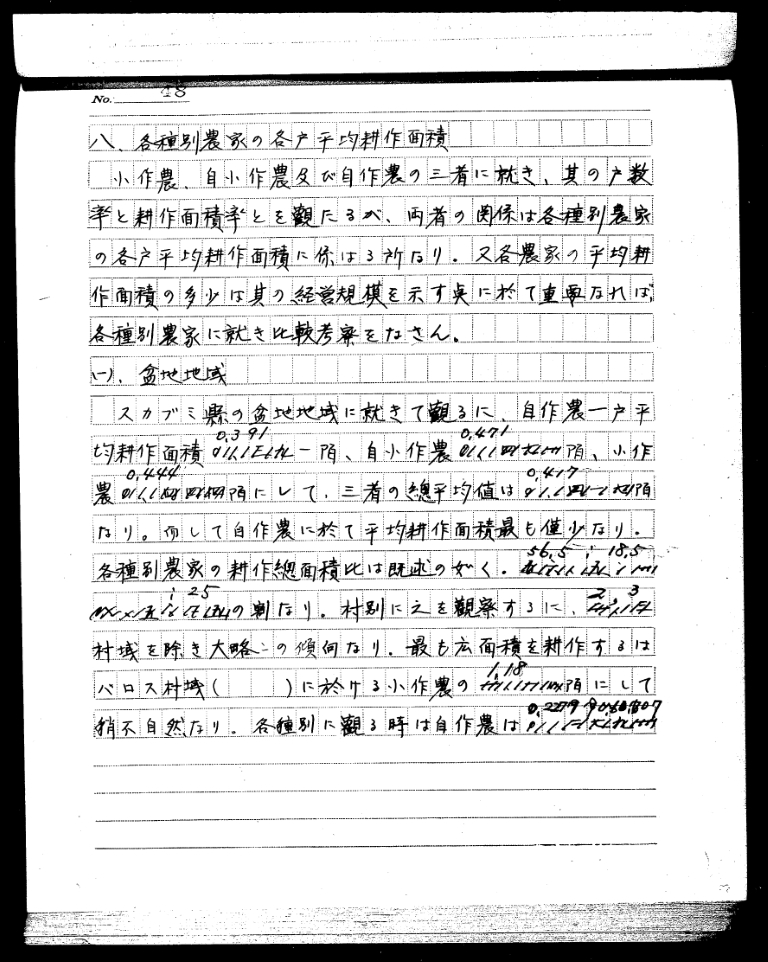 No. 48
八、各種別農家の各戸平均耕作面積
小作農、自小作農及び自作農の三者に就き、其の戸数
率と耕作面積率とを觀たるが、両者の関係は各種別農家
の各戸平均耕作面積に係はる所なり。又各農家の平均耕
作面積の多少は其の経営規模を示す点に於て重要なれば、
各種別農家に就き比較考察をなさん。
(一)、盆地地域
スカブミ縣の盆地地域に就きて觀るに、自作農一戸平
均耕作面積0,391陌、自小作農0,471陌、小作
農0,444陌にして、三者の總平均値は0,417陌
なり。而して自作農に於て平均耕作面積最も僅少なり。
各種別農家の耕作總面積比は既述の如く。56,5 ; 18,5
; 25の割なり。村別に之を觀察するに、2, 3
村域を除き大略この傾向なり。最も広面積を耕作するは
バロス村域( )に於ける小作農の1,18陌にして
稍不自然なり。各種別に觀る時は自作農は